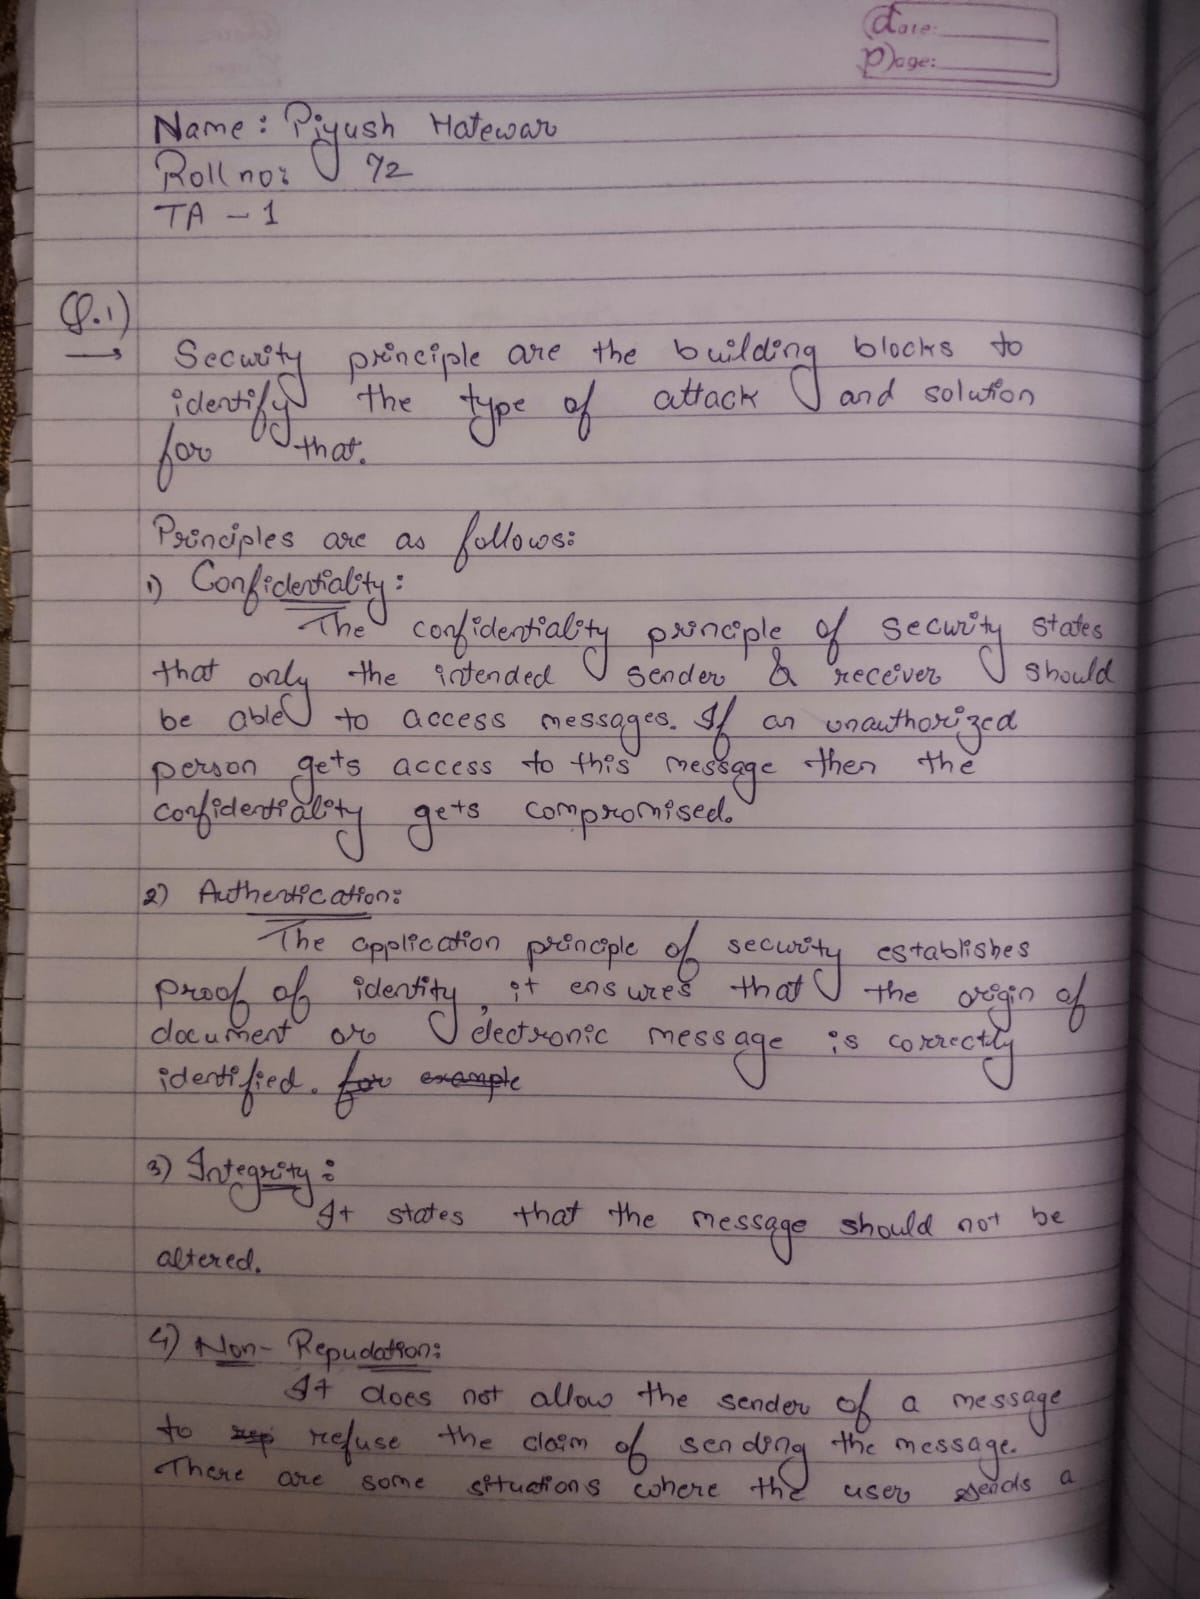 Date:
Page:
Name: Piyush Hatewar
Roll no: 72
TA - 1
Q.1)
Security principle are the building blocks to
identify the type of attack and solution
for that.
Principles are as follows:
1) Confidentiality:
The confidentiality principle of security states
that only the intended sender & receiver should
be able to access messages. If an unauthorized
person gets access to this message then the
confidentiality gets compromised.
2) Authentication:
The application principle of security establishes
proof of identity, it ensures that the origin of
document or electronic message is correctly
identified. for example
3) Integrity:
It states that the message should not be
altered.
4) Non-Repudation:
It does not allow the sender of a message
to rep refuse the claim of sending the message.
There are some situations where the user sends a